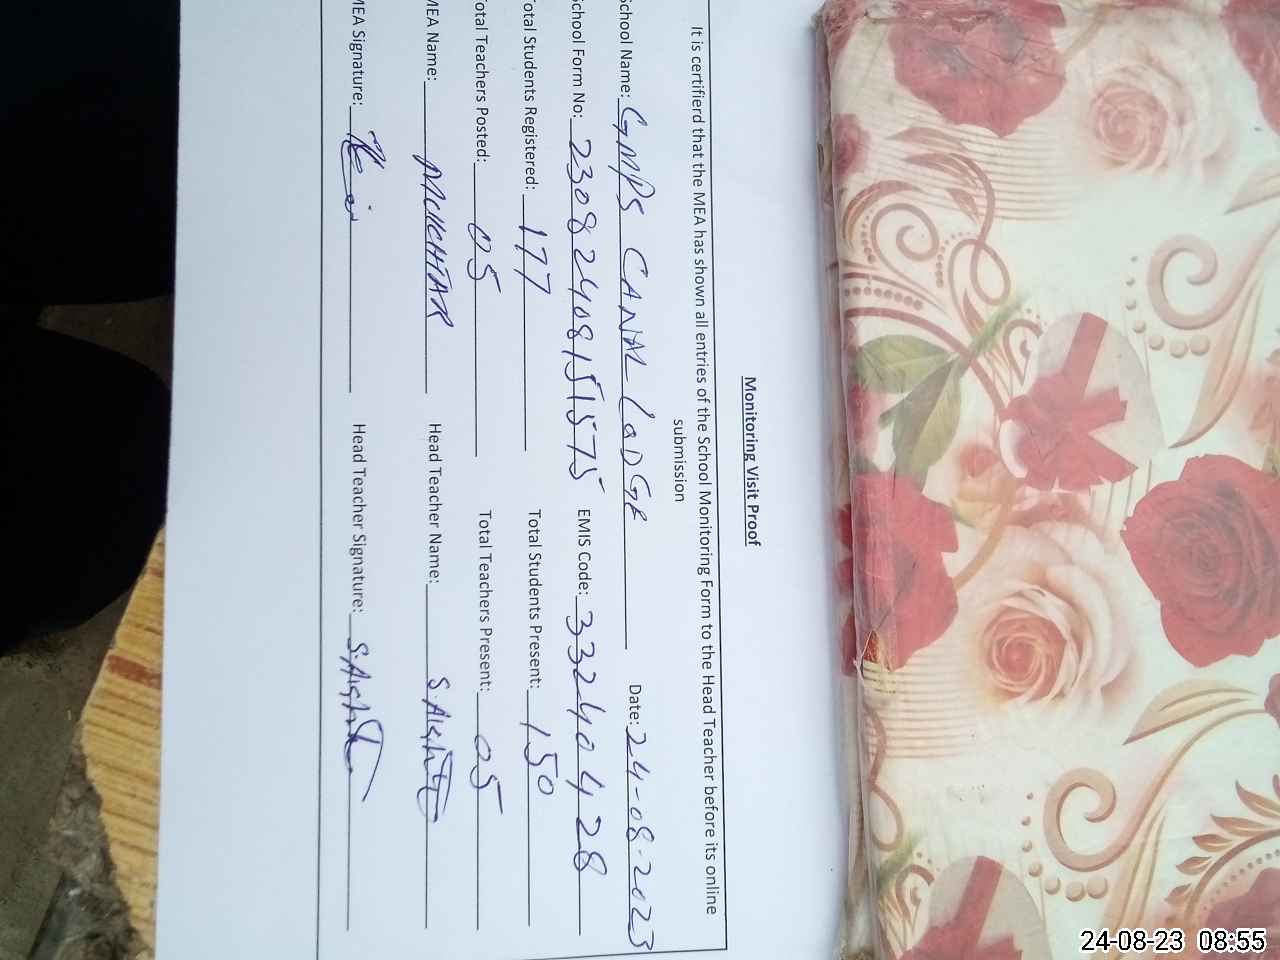 Monitoring Visit Proof
It is certifierd that the MEA has shown all entries of the School Monitoring Form to the Head Teacher before its online
submission
School Name: GMPS CANAL LODGE Date: 24-08-2023
School Form No: 23082408151575 EMIS Code: 33240428
Total Students Registered: 177 Total Students Present: 150
Total Teachers Posted: 05 Total Teachers Present: 05
MEA Name: MUKHTAR Head Teacher Name: S.Akhtar
MEA Signature: Head Teacher Signature: S.Akhtar
24-08-23 08:55